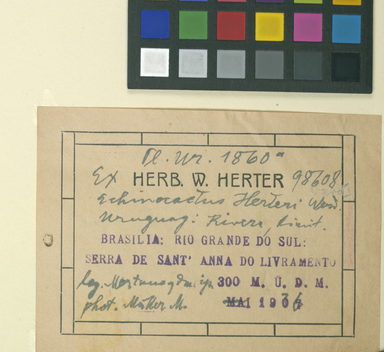 Pl. Ur. 1860a
Ex HERB. W. HERTER 98608
Echinocactus Herteri Werd.
Uruguay: Rivera, limit.
BRASILIA: RIO GRANDE DO SUL:
SERRA DE SANT' ANNA DO LIVRAMENTO
leg. 300 M. Ü. D. M.
phot. Müller M. MAI 1936